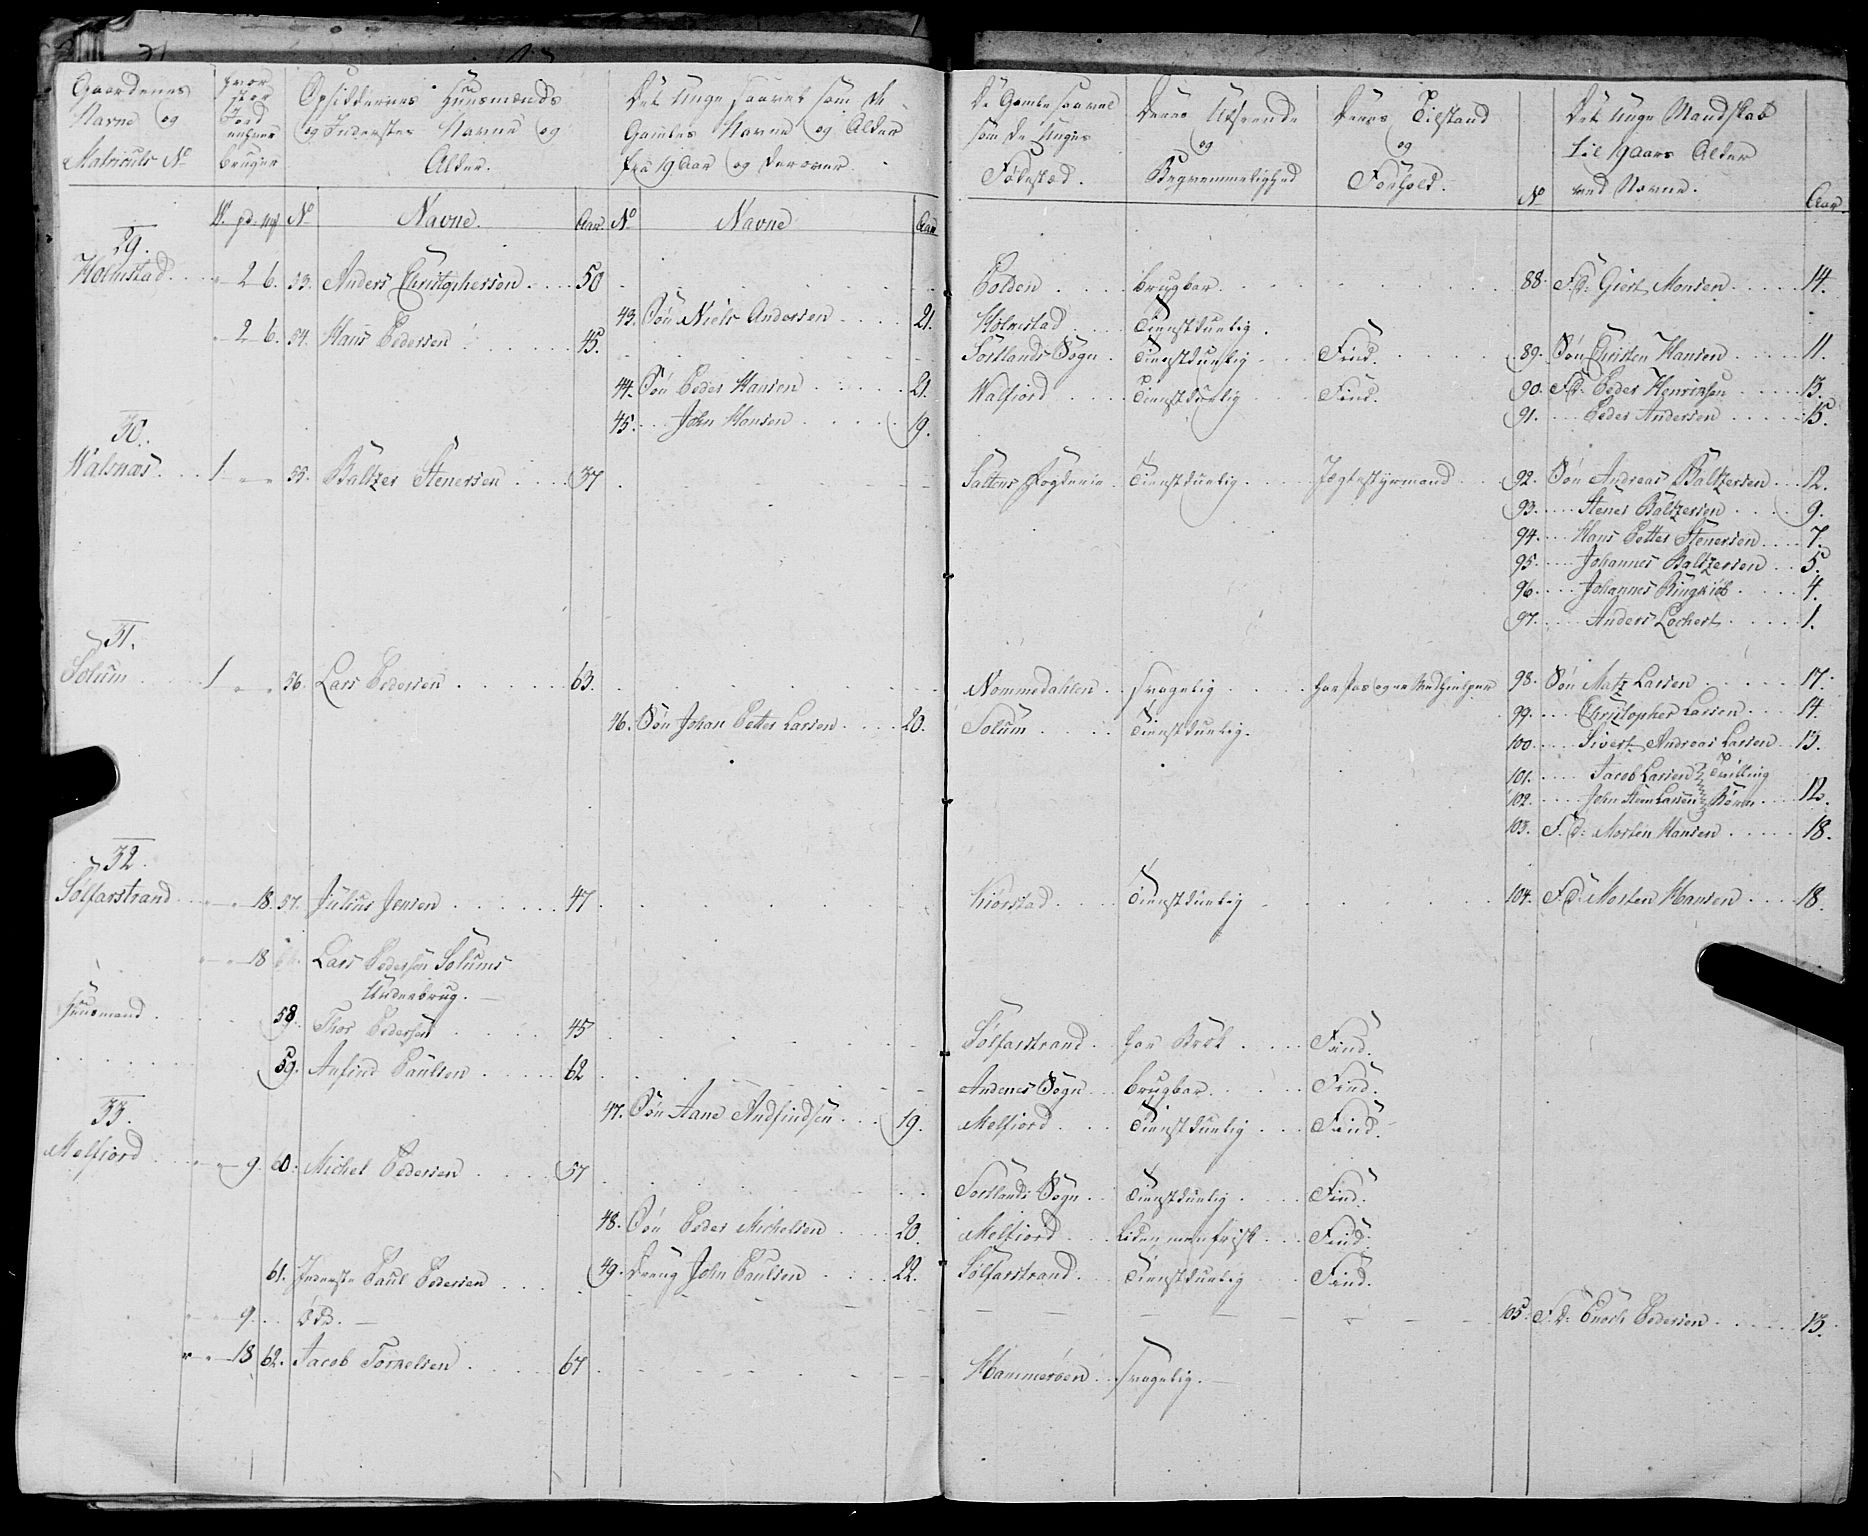 Gaardenes
Navne og
Matriculs No
hvor
stor
Jord
enhver
bruger
Opsiddernes Huusmænds
og Inderstes Navne og
Alder.
Det Unge saavel som de
Gamles Navne og Alder
fra 19 Aar og derover.
De Gamle saavel
som de Unges
Fødestæd.
Deres Udseende
og
Beqvemmelighed
Deres Tilstand
og
Forhold.
No
Det Unge Mandskab
til 19 Aars Alder
ved Navne.
Aar.
W. pd. mk No Navne. Aar. No Navne Aar
29.
Holmstad 2 6. 53. Anders Christophersen 50 Bolden brugbar 88. F.S: Giert Monsen 14.
43. Søn Niels Andersen 21. Holmstad Tienstduelig.
2 6. 54. Hans Pedersen 45. Sortlands Sogn Tienstduelig Find. 89. Søn Christen Hansen 11.
44. Søn Peder Hansen 21. Walfiord Tienstduelig Find. 90. F.S: Peder Henriksen 13.
45. John Hansen 19. 91. Peder Andersen 15.
30.
Walsnæs 1 " " 55. Baltzer Stenersen 37 Saltens Fogderie Tienstduelig Jægtestyrmand 92. Søn Andreas Baltzersen 12.
93. Stener Baltzersen 9.
94. Hans Petter Stenersen 7.
95. Johannes Baltzersen 5.
96. Johannes Ringkiøb 4.
97. Anders Lochert 1.
31.
Solum 1 " " 56. Lars Pedersen 63. Nommedahlen svagelig har Pas og er Medhielper 98. Søn Matz Larsen 17.
46. Søn Johan Petter Larsen 20. Solum Tienstduelig. 99. Christopher Larsen 14.
100. Sivert Andreas Larsen 13.
101. Jacob Larsen Tvilling
102. John Steen Larsen Børn 12.
103. F.S: Morten Hansen 18.
32.
Solfarstrand " " 18. 57. Julius Jensen 47 Kiørstad Tienstduelig 104. F.S: Morten Hansen 18.
" " 18 Lars Pedersen Solums
Underbrug.
Huusmand 58. Thor Pedersen 45 Solfarstrand har Brok Find.
59. Anfind Paulsen 62 Andenes Sogn brugbar Find.
47. Søn Aane Andfindsen 19. Melfiord Tienstduelig Find.
33.
Melfiord " " 9. 60. Michel Pedersen 57 Sortlands Sogn Tienstduelig Find.
48. Søn Peder Michelsen 20. Melfiord Liden men frisk Find.
61. Inderste Paul Pedersen 49. Dreng John Paulsen 22. Solfarstrand Tienstduelig Find.
" " 9. Øde. 105. F.S: Enoch Pedersen 13.
" " 18 62. Jacob Torkelsen 67 Hammerøen svagelig.